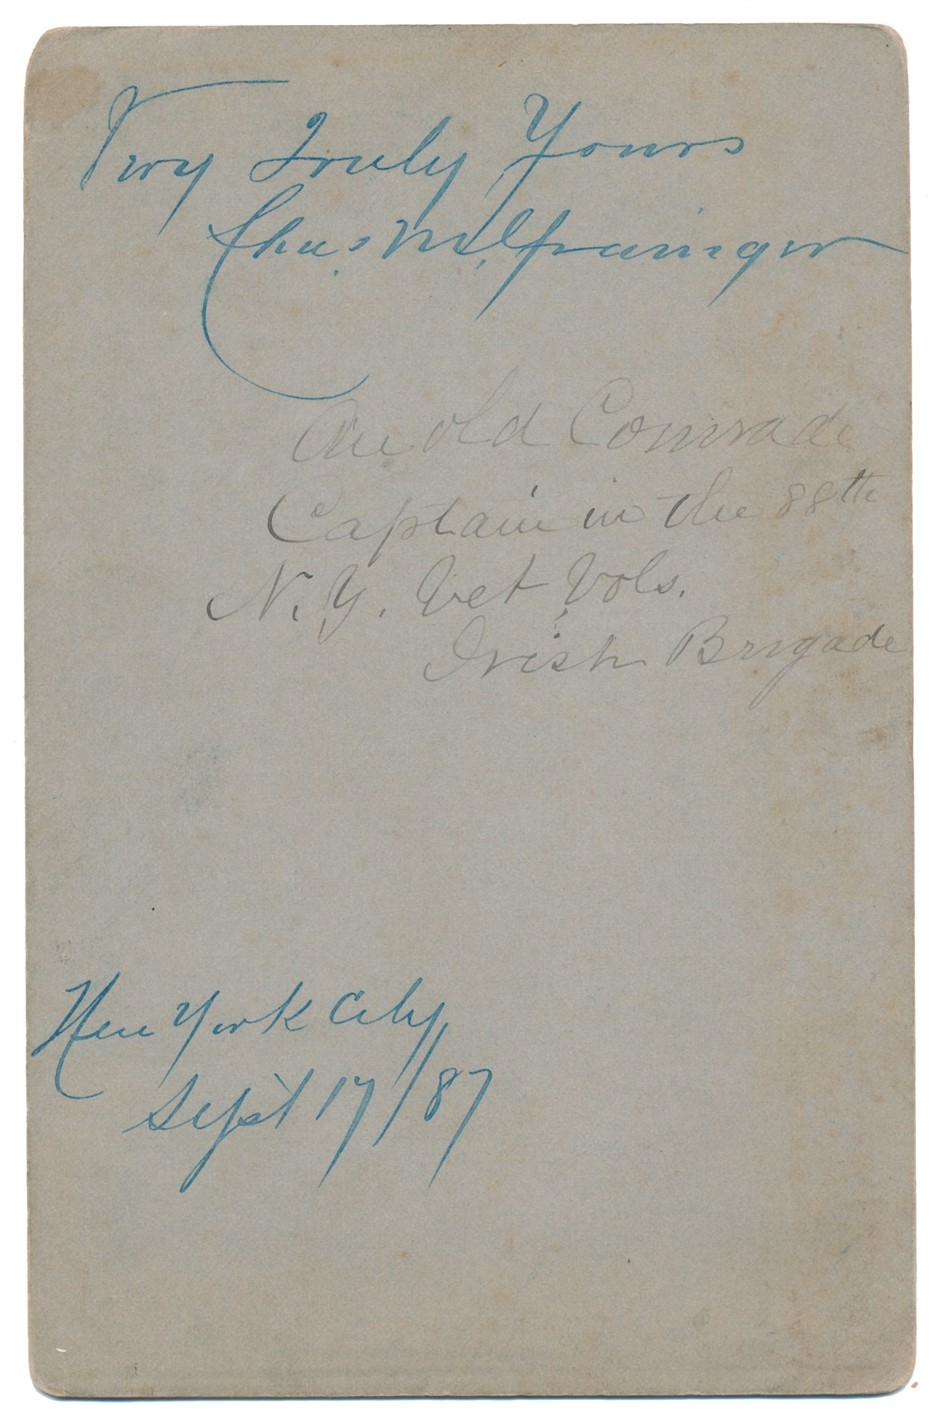 Very Truly Yours
Chas. M. Grainger
An old Comrade
Captain in the 88th
N.Y. Vet Vols.
Irish Brigade
New York City
Sept 17/87